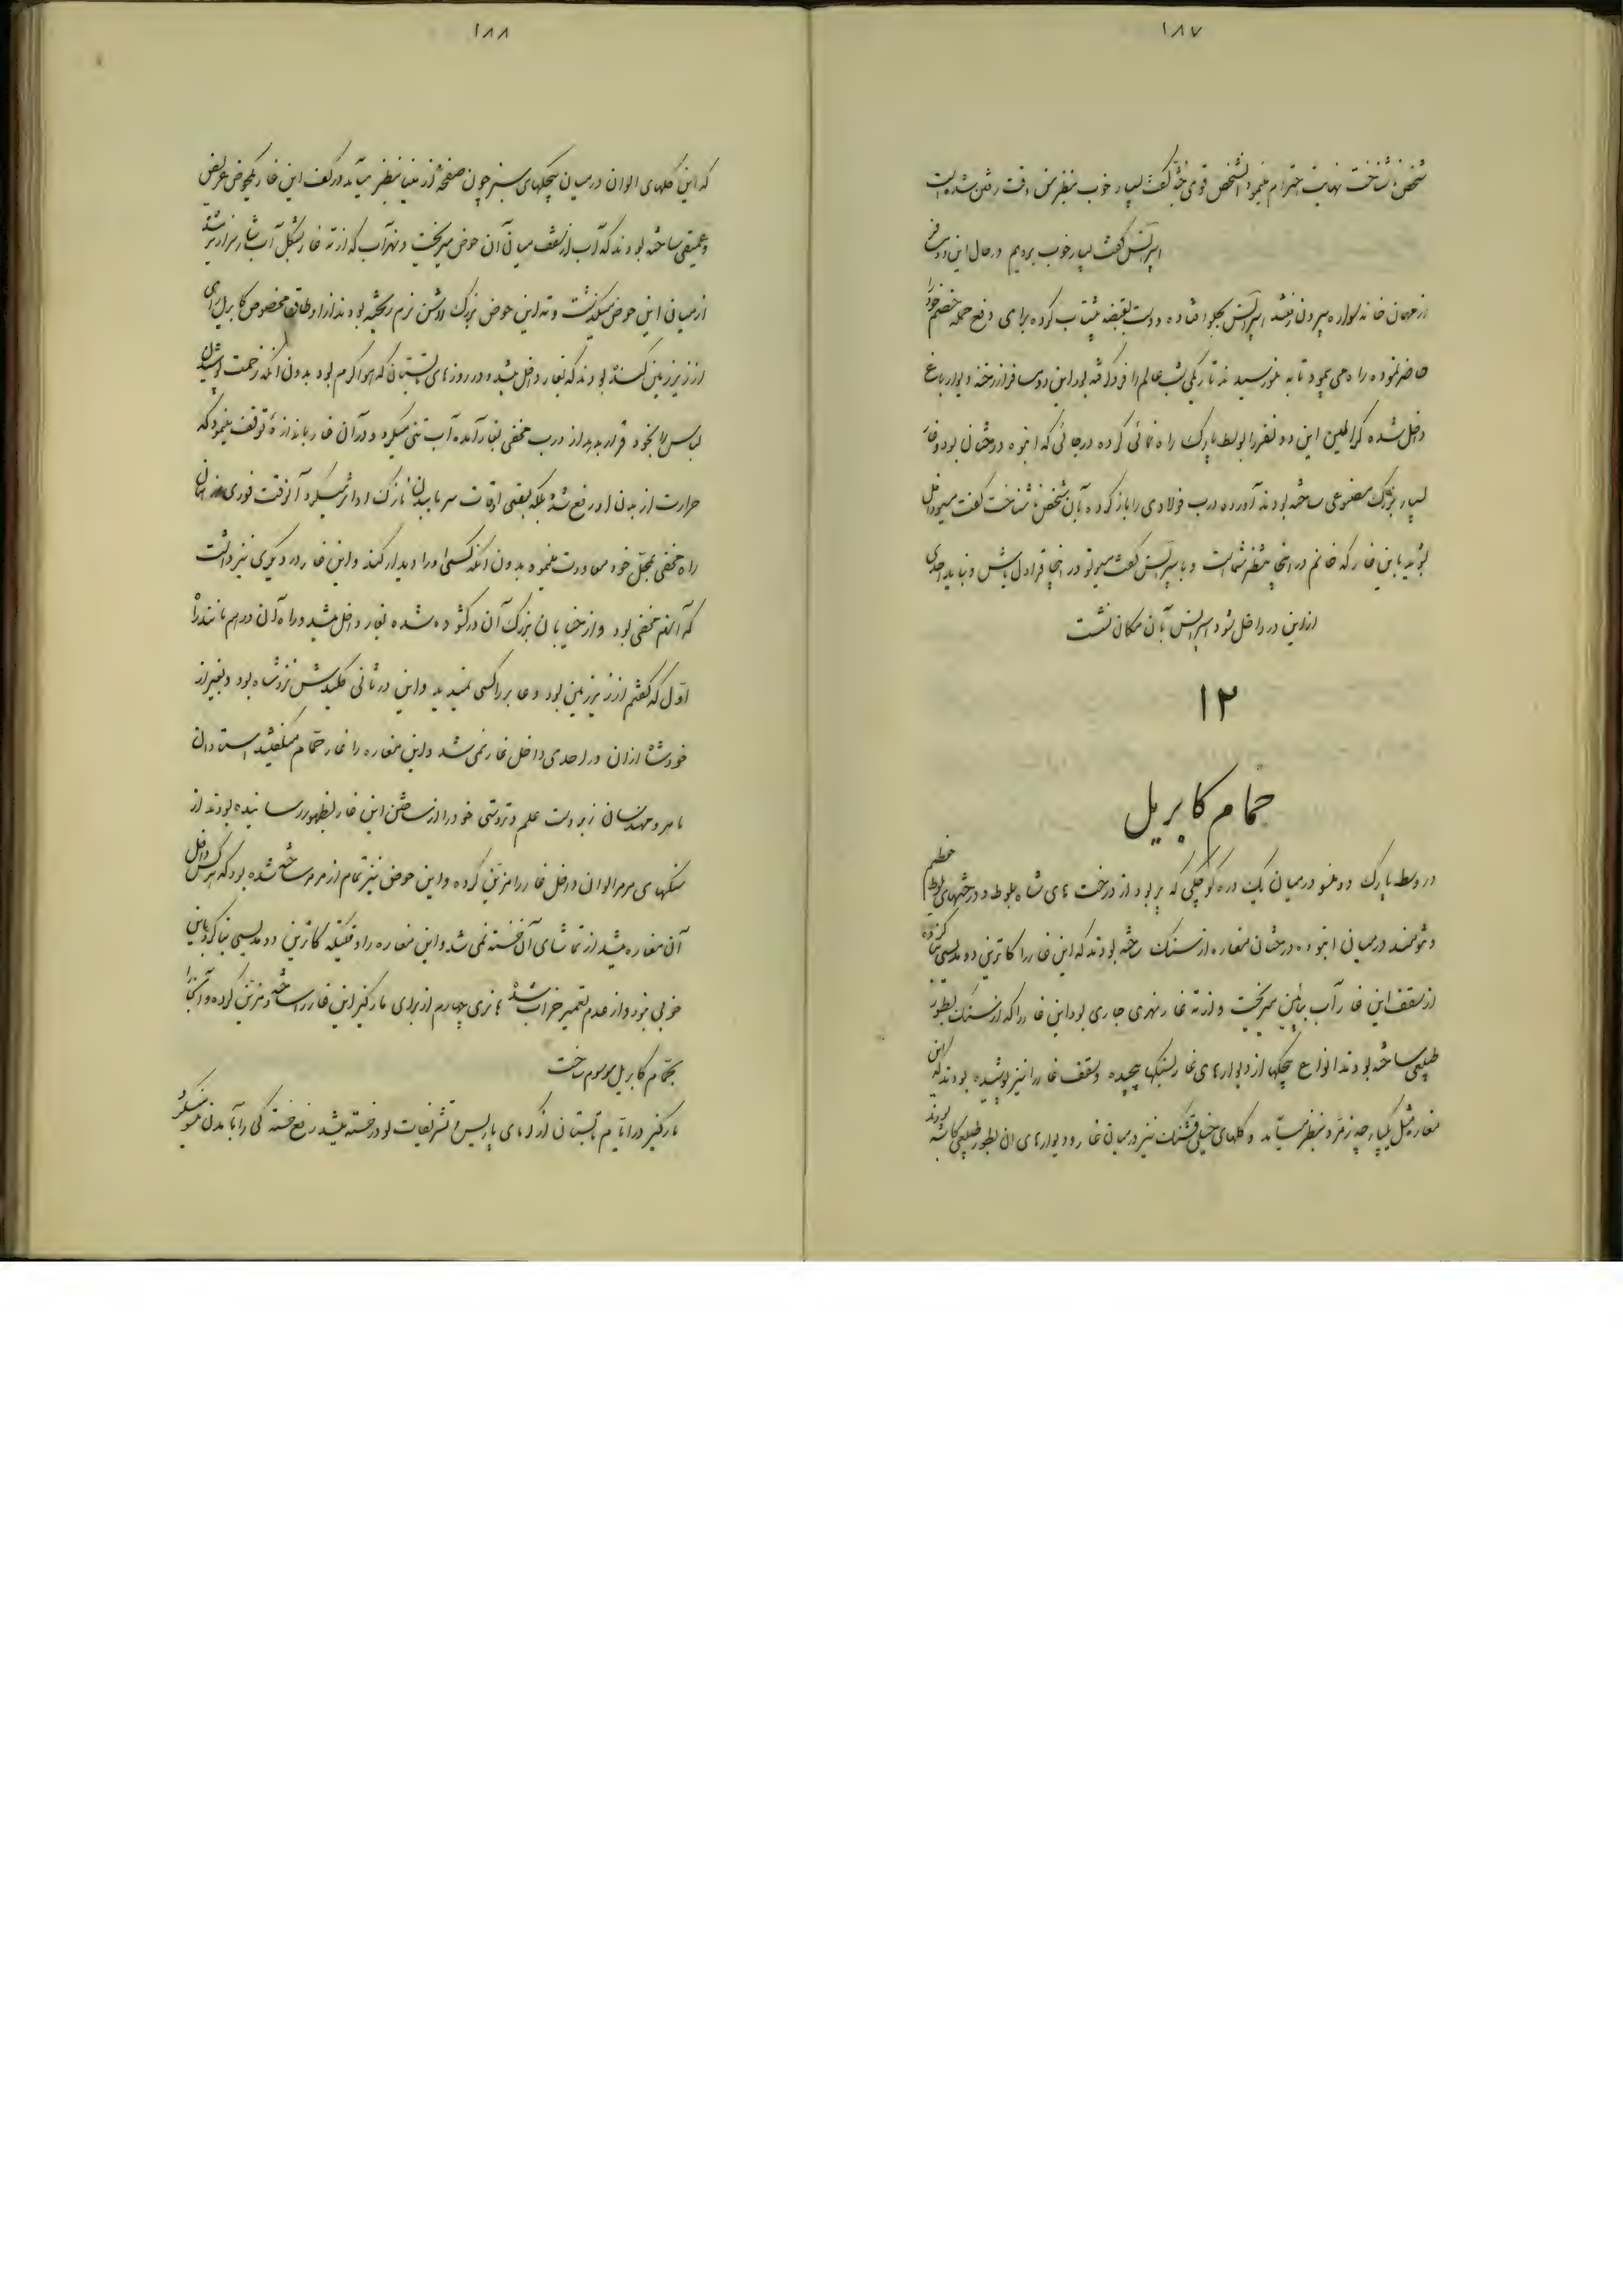 ۱۸۷
شخص ناشناخت نهایت احترام مینمود آنشخص قوی جثه گفت بسیار خوب بنظرمن وقت رفتن شده است
اسپرانس گفت بسیار خوب برویم در حال این دو نفر
از مهمان خانه سواره بیرون رفتند اسپرانس بجلو افتاده و دست بقبضه کرده برای دفع حمله خصم خود را
حاضر نموده راه می پیمود تا به رسیدند تاریکی شب عالم را فرو گرفته بود این دو مسافر از رخنه دیوار باغ
داخل شده این دو نفر را بوسط پارک راه نمائی کرده در جائی که انبوه درختان بود و غار
بسیار بزرگ مصنوعی ساخته بودند آورده درب فولادی را باز کرده بآن شخص ناشناخت گفت مسیو داخل
شوید باین غار که خانم در اینجا منتظر شماست و باسپرانس گفت مسیو تو در اینجا قراول باش و نباید احدی
ازاین در داخل شود اسپرانس بآن مکان نشست
۱۲
حمام کابریل
در وسط پارک در میان یک دره کوچکی که پر بود از درخت های شاه بلوط و درختهای بلوط عظیم
و تنومند در میان انبوه درختان مغاره از سنگ ساخته بودند که این غار را کاترین دو مدیسی بنا کرده
از سقف این غار آب بپائین میریخت و از ته غار نهری جاری بود این غار را که از سنگ بطور
طبیعی ساخته بودند انواع پیچکها از دیوارهای غار بسنگها پیچیده و سقف غار را نیز پوشیده بودند که این
مغار مثل یکپارچه زمرد بنظر میآمد و گلهای خیلی قشنگ نیز در میان غار و دیوارهای ان بطور طبیعی کاشته بودند
۱۸۸
که این گلهای الوان در میان پیچکهای سبز چون صفحه از مینا بنظر میآمد در کف این غار یکحوض عریض
و عمیقی ساخته بودند که آب از سقف میان آن حوض میریخت و نهر آب که از ته غار بشکل آبشار سرازیر میشد
از میان این حوض میگذشت و ته این حوض بزرگ را شن نرم ریخته بودند از اوطاق مخصوص کابریل راهی
از زیر زمین کنده بودند که بغار داخل میشد و در روزهای تابستان که هوا گرم بود بدون آنکه زحمت پوشیدن
لباس را بخود قرار بدهد از درب مخفی بغار آمده آب تنی میکرد و در آن غار باندازهٔ توقف مینمود که
حرارت از بدن او رفع شده بلکه بعضی اوقات سرما ببدن نازک او اثر میکرد آنوقت فوری از همان
راه مخفی بمحل خود معاودت مینمود بدون آنکه کسی او را دیدار کند و این غار در دیگری نیز داشت
که آنهم مخفی بود و از خیابان بزرگ آن در گشوده شده بغار داخل میشد و راه آن در هم مانند راه
اول که گفتم از زیر زمین بود و عابر را کسی نمیدید و این در ثانی کلیدش نزد شاه بود و بغیر از
خود شاه از ان در احدی داخل غار نمی شد و این مغاره را غار حمام میگفتند استادان
ماهر و مهندسان زبردست علم و تردستی خود را از ساختن این غار بظهور رسانیده بودند از
سنگهای مرمر الوان داخل غار را مزین کرده و این حوض نیز تمام از مرمر ساخته شده بود که هر کس داخل
آن مغاره میشد از تماشای آن خسته نمی شد و این مغاره را وقتیکه کاترین دو مدیسی بنا کرد باین
خوبی نبود و از عدم تعمیر خراب شده هانری چهارم از برای مارکیز این غار را ساخته و مزین کرده و آنجا را
بحمام کابریل موسوم ساخت
مارکیز در ایام تابستان از گرمای پاریس و تشریفات لوور خسته میشد رفع خسته گی را بآمدن منسو میکرد